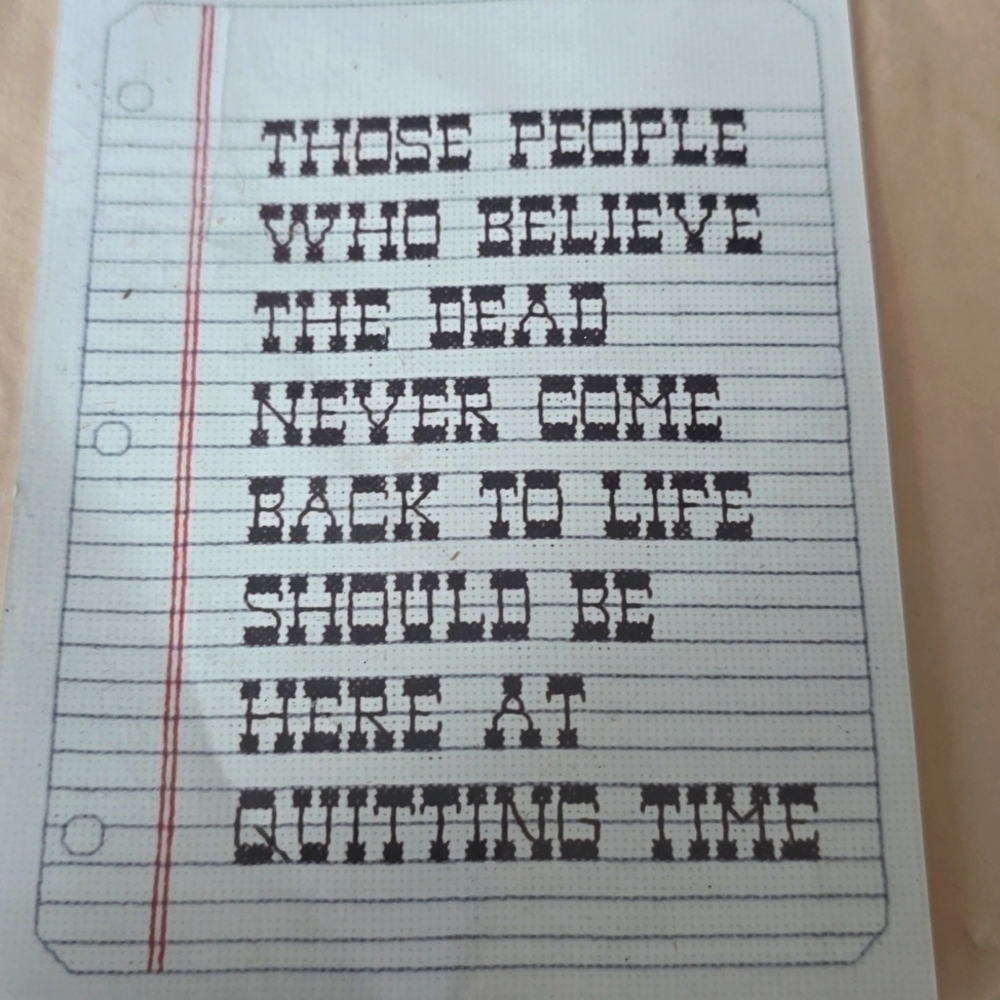 THOSE PEOPLE
WHO BELIEVE
THE DEAD
NEVER COME
BACK TO LIFE
SHOULD BE
HERE AT
QUITTING TIME